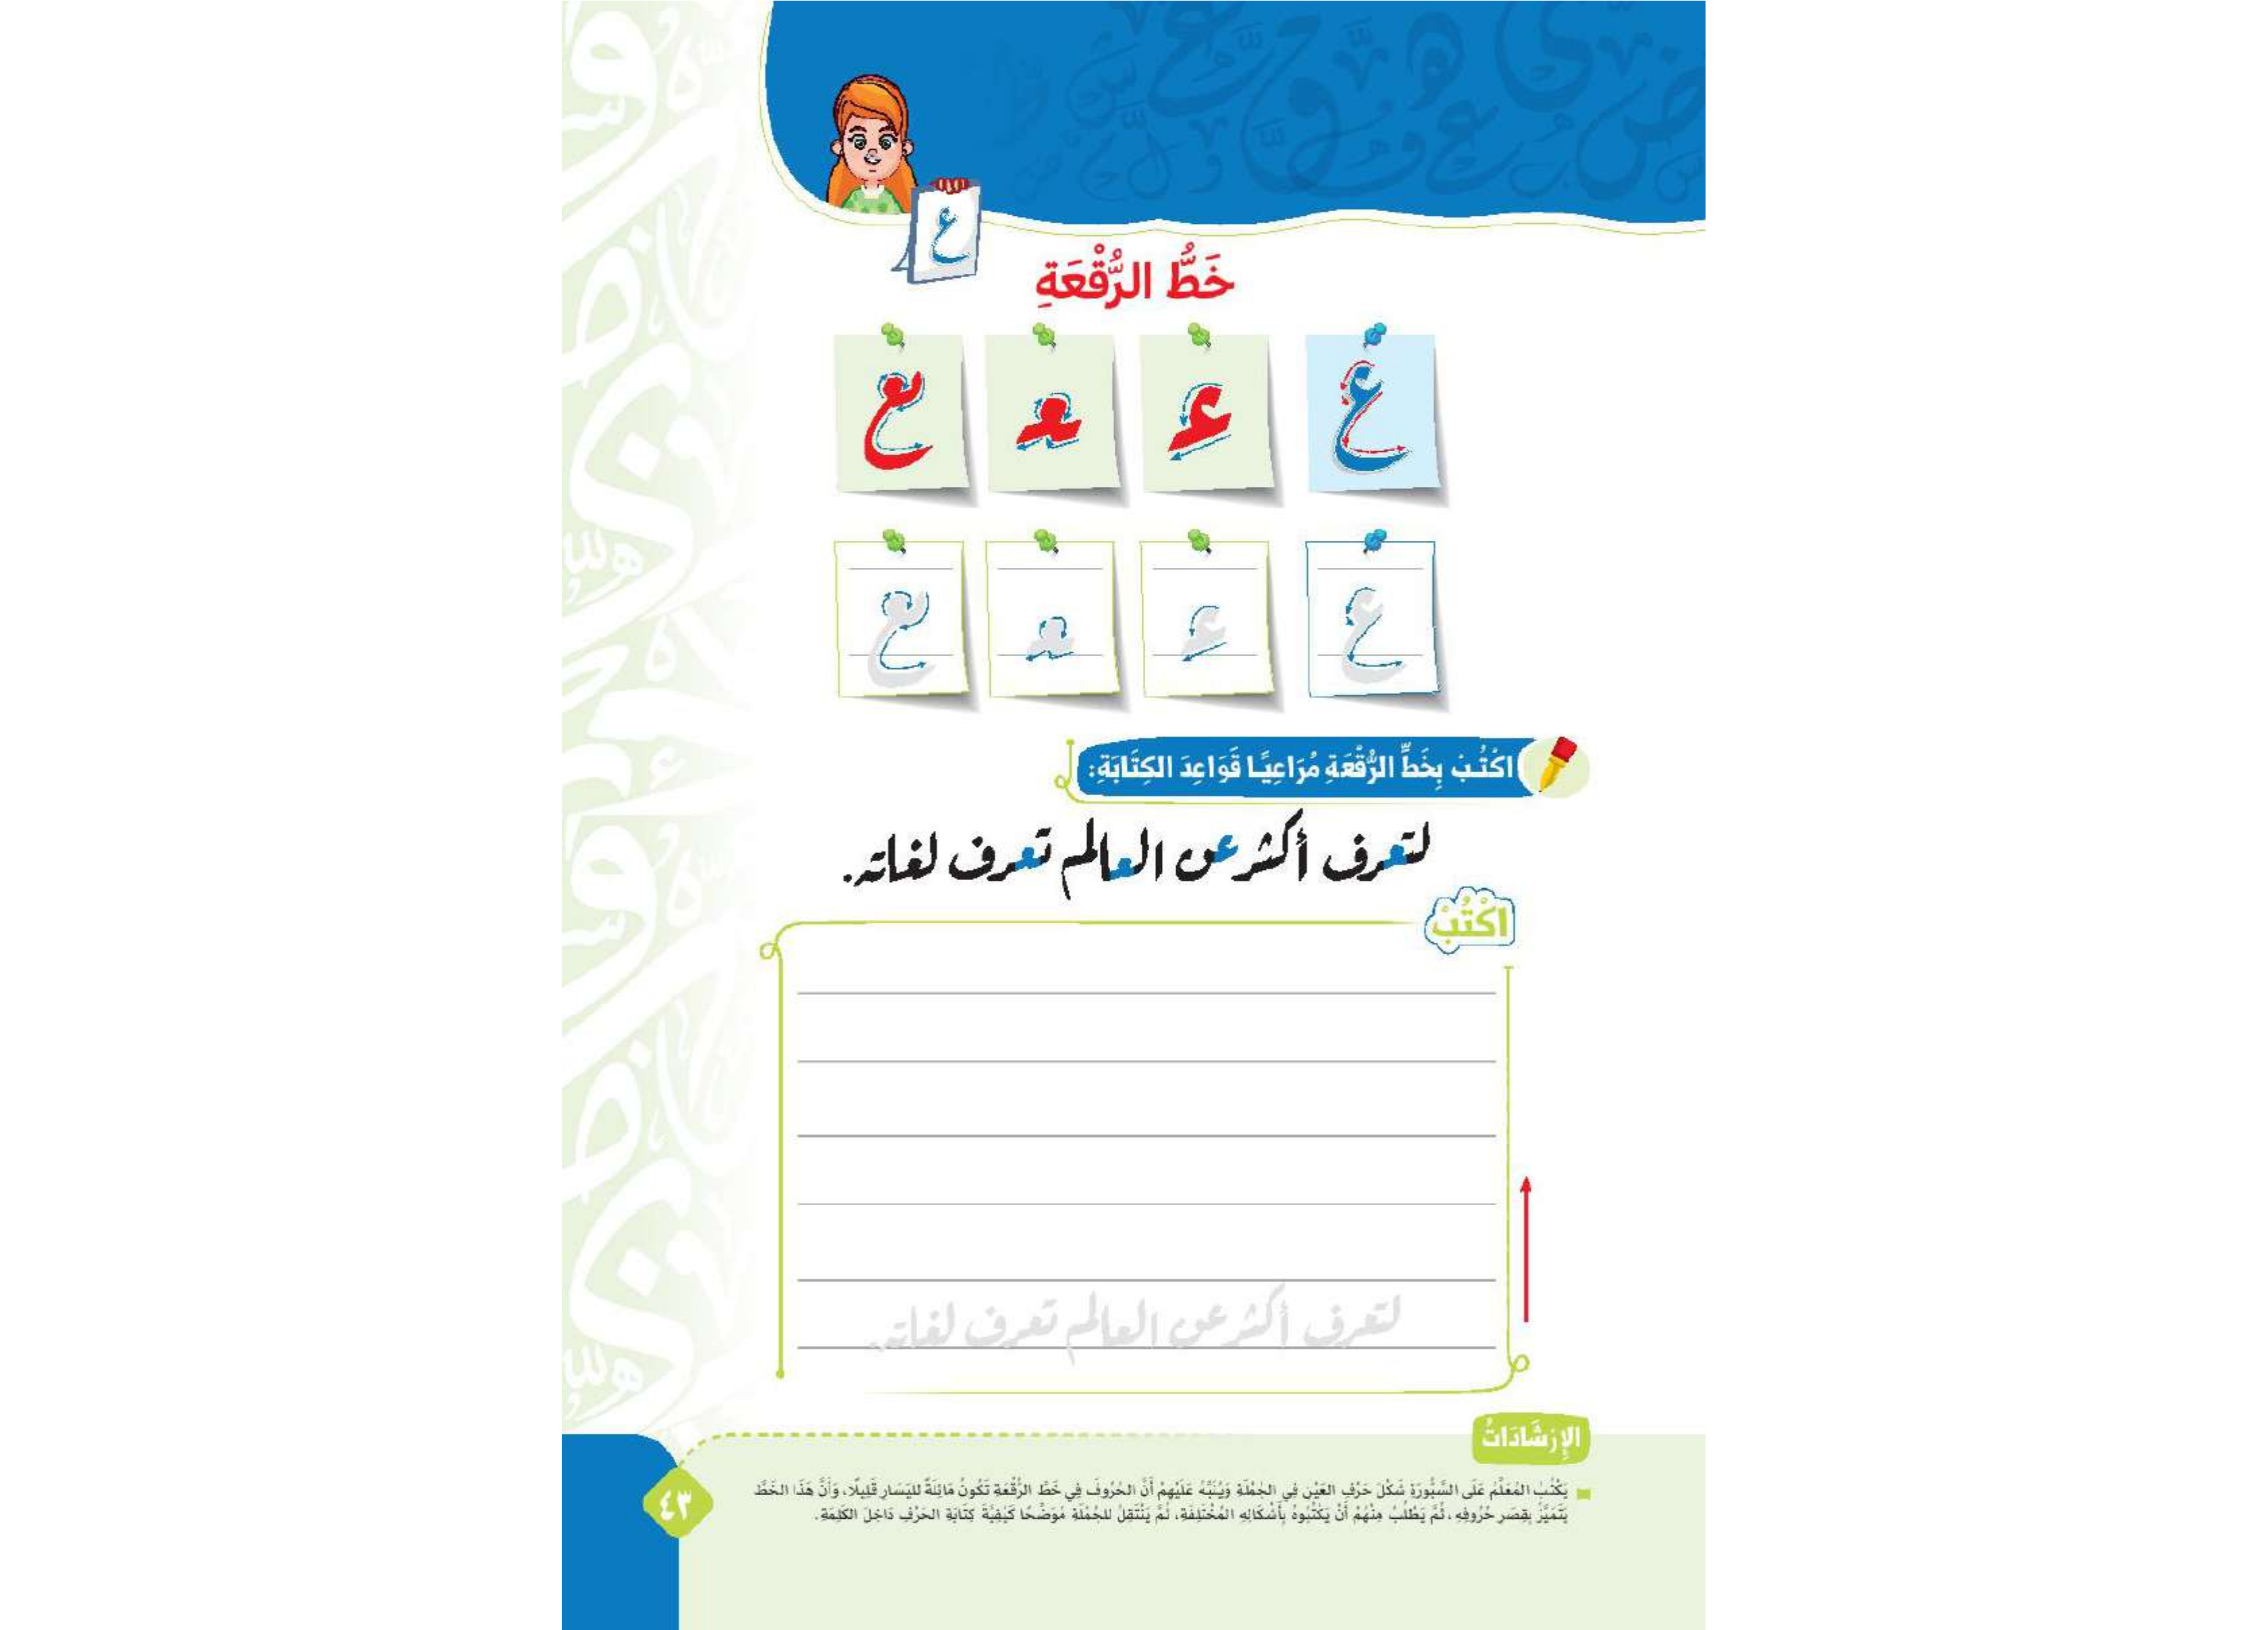 ع
خَطُّ الرُّقْعَةِ
ع عـ ـعـ ـع
ع عـ ـعـ ـع
اكْتُبْ بِخَطِّ الرُّقْعَةِ مُرَاعِيًا قَوَاعِدَ الكِتَابَةِ:
لتعرف أكثر عن العالم تعرف لغاته.
اكْتُبْ
لتعرف أكثر عن العالم تعرف لغاته.
الإِرْشَادَاتُ
يَكْتُبُ المُعَلِّمُ عَلَى السَّبُّورَةِ شَكْلَ حَرْفِ العَيْنِ فِي الجُمْلَةِ وَيُنَبِّهُ عَلَيْهِمْ أَنَّ الحُرُوفَ فِي خَطِّ الرُّقْعَةِ تَكُونُ مَائِلَةً لليَسَارِ قَلِيلًا، وَأَنَّ هَذَا الخَطَّ
يَتَمَيَّزُ بِقِصَرِ حُرُوفِهِ، ثُمَّ يَطْلُبُ مِنْهُمْ أَنْ يَكْتُبُوهُ بِأَشْكَالِهِ المُخْتَلِفَةِ، ثُمَّ يَنْتَقِلُ للجُمْلَةِ مُوَضِّحًا كَيْفِيَّةَ كِتَابَةِ الحَرْفِ دَاخِلَ الكَلِمَةِ.
٤٣